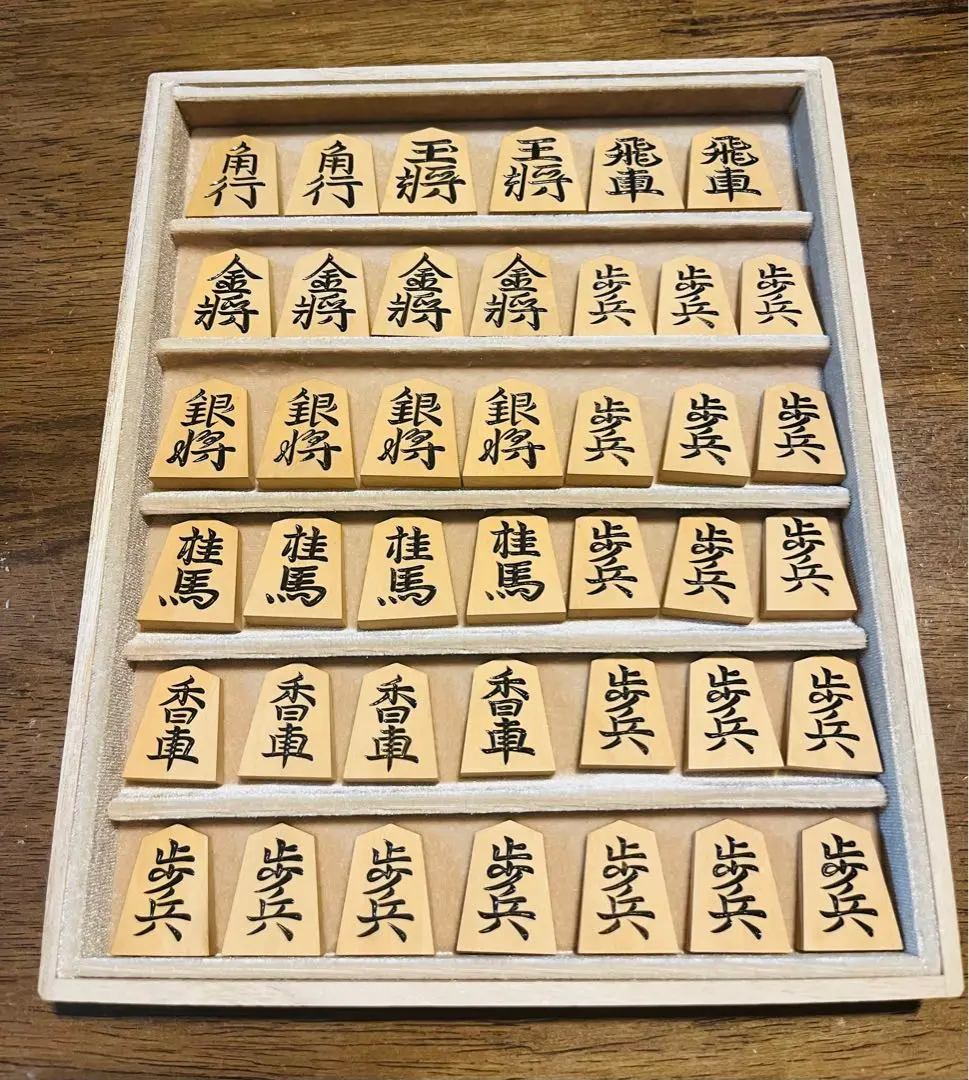 角行 角行 玉将 王将 飛車 飛車
金将 金将 金将 金将 歩兵 歩兵 歩兵
銀将 銀将 銀将 銀将 歩兵 歩兵 歩兵
桂馬 桂馬 桂馬 桂馬 歩兵 歩兵 歩兵
香車 香車 香車 香車 歩兵 歩兵 歩兵
歩兵 歩兵 歩兵 歩兵 歩兵 歩兵 歩兵